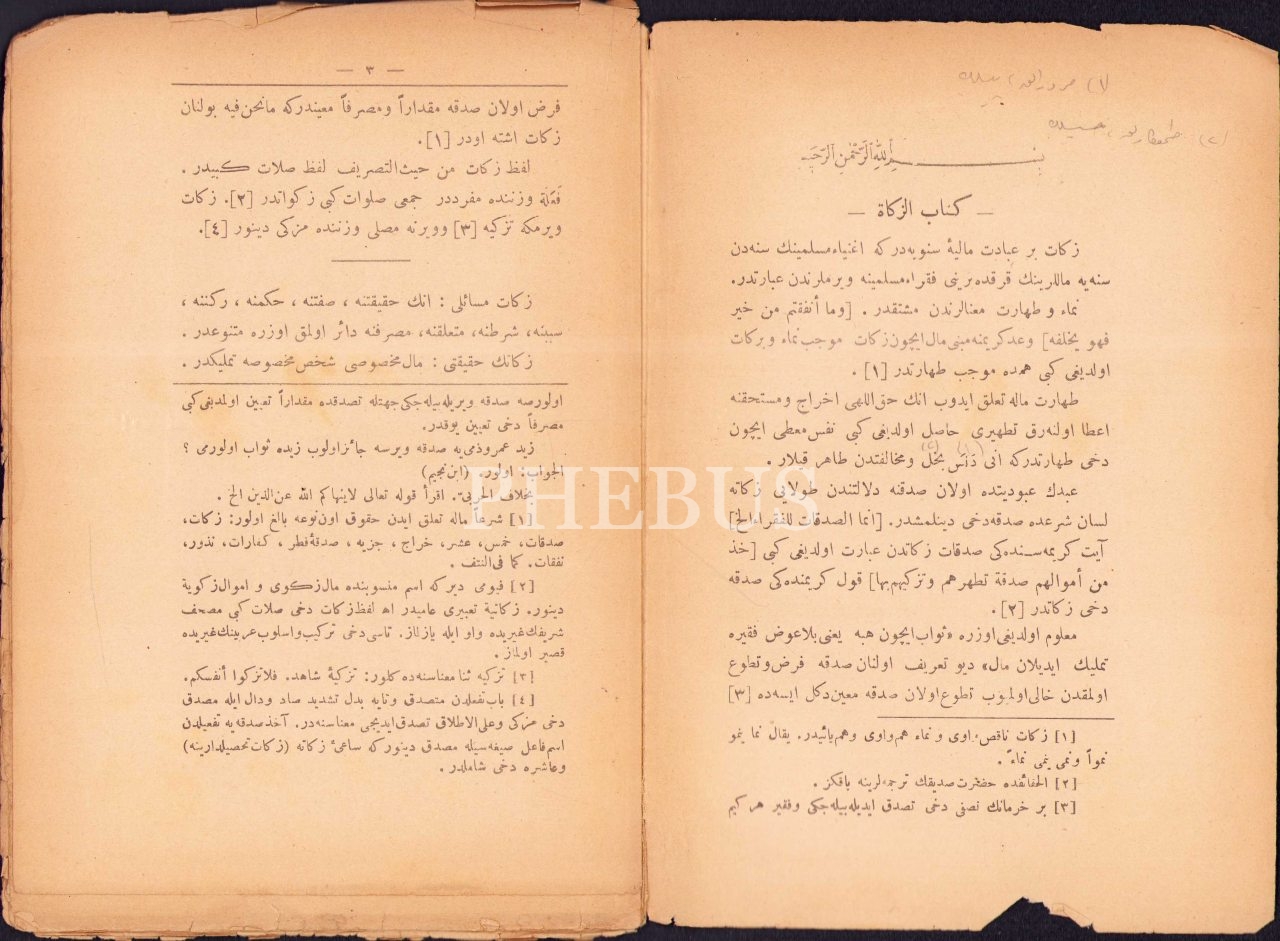 بسم الله الرحمن الرحيم
— كتاب الزكاة —
زكات بر عبادت ماليهٔ سنويه‌در كه اغنياء مسلمينك سنه‌دن
سنه‌يه ماللرينك قرقده برينى فقراء مسلمينه ويرملرندن عبارتدر.
نماء و طهارت معنالرندن مشتقدر . [وما أنفقتم من خير
فهو يخلفه] وعد كريمنه مبنى مال ايچون زكات موجب نماء وبركات
اولديغى كبى همده موجب طهارتدر [١] .
طهارت ماله تعلق ايدوب انك حق اللهى اخراج ومستحقنه
اعطا اولنه‌رق تطهيرى حاصل اولديغى كبى نفس معطى ايچون
دخى طهارتدركه انى دَنَس بخل ومخالفتدن طاهر قيلار .
عبدك عبوديتده اولان صدقنه دلالتندن طولايى زكاته
لسان شرعده صدقه دخى دينلمشدر. [انما الصدقات للفقراء الخ]
آيت كريمه‌سنده‌كى صدقات زكاتدن عبارت اولديغى كبى [خذ
من أموالهم صدقة تطهرهم وتزكيهم بها] قول كريمنده‌كى صدقه
دخى زكاتدر [٢].
معلوم اولديغى اوزره «ثواب ايچون هبه يعنى بلاعوض فقيره
تمليك ايديلان مال» ديو تعريف اولنان صدقه فرض وتطوع
اولمقدن خالى اولميوب تطوع اولان صدقه معين دكل ايسه‌ده [٣]
[١] زكات ناقص واوى و نماء هم واوى وهم يائيدر. يقال نما ينمو
نمواً ونمى ينمى نماءً .
[٢] الحقائقده حضرت صديقك ترجمه‌لرينه باقكز .
[٣] بر خرمانك نصفى دخى تصدق ايديله‌بيله‌جكى وفقير هر كيم
— ٣ —
فرض اولان صدقه مقداراً ومصرفاً معيندركه مانحن فيه بولنان
زكات اشته اودر [١].
لفظ زكات من حيث التصريف لفظ صلات كبيدر .
فَعَلَة وزننده مفرددر جمعى صلوات كبى زكواتدر [٢]. زكات
ويرمكه تزكيه [٣] وويرنه مصلى وزننده مزكى دينور [٤].
زكات مسائلى : انك حقيقتنه ، صفتنه ، حكمنه ، ركننه ،
سببنه، شرطنه، متعلقنه، مصرفنه دائر اولمق اوزره متنوعدر .
زكاتك حقيقتى : مال مخصوصى شخص مخصوصه تمليكدر .
اولورسه صدقه ويريله‌بيله‌جكى جهتله تصدقده مقداراً تعيين اولمديغى كبى
مصرفاً دخى تعيين يوقدر.
زيد عمرو ذمى‌يه صدقه ويرسه جائز اولوب زيده ثواب اولورمى ؟
الجواب: اولور. (ابن نجيم)
بخلاف الحربى. اقرأ قوله تعالى لاينهاكم الله عن الذين الخ .
[١] شرعاً ماله تعلق ايدن حقوق اون نوعه بالغ اولور: زكات،
صدقات، خمس، عشر، خراج ، جزيه ، صدقهٔ فطر ، كفارات، نذور،
نفقات. كما فى النتف .
[٢] فيومى ديركه اسم منسوبنده مال زكوى و اموال زكوية
دينور. زكاتية تعبيرى عاميدر اه لفظ زكات دخى صلات كبى مصحف
شريفك غيريده واو ايله يازلماز. تاسى دخى تركيب واسلوب عربينك غيريده
قصير اولماز .
[٣] تزكيه ثنا معناسنه‌ده كلور: تزكيهٔ شاهد. فلاتزكوا أنفسكم.
[٤] باب تفعلدن متصدق وتايه بدل تشديد صاد ودال ايله مصدق
دخى مزكى وعلى الاطلاق تصدق ايديجى معناسنه‌در. آخذ صدقه‌يه تفعيلدن
اسم فاعل صيغه‌سيله مصدق دينور كه ساعىٔ زكاته (زكات تحصيلدارينه)
وعاشره دخى شاملدر .
PHEBUS